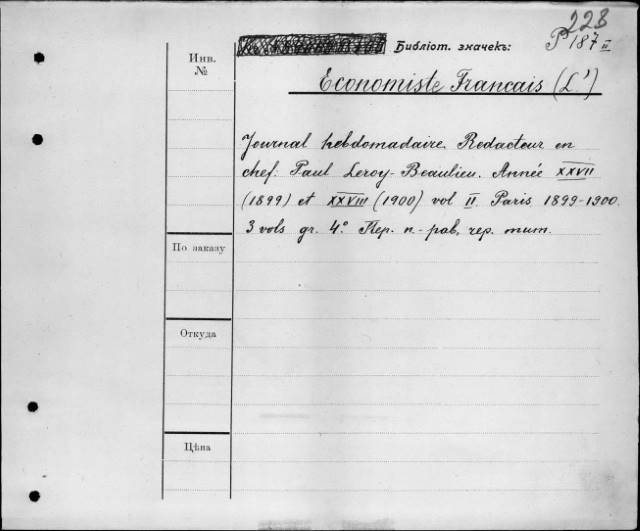 228
Библіот. значекъ: P 187 II
Инв. №
Economiste Francais (L')
Journal hebdomadaire. Redacteur en
chef: Paul Leroy-Beaulieu. Année XXVII
(1899) et XXVIII (1900) vol II. Paris 1899-1900.
3 vols gr. 4° Пер. п.-раб, кор. тит.
По заказу
Откуда
Цѣна